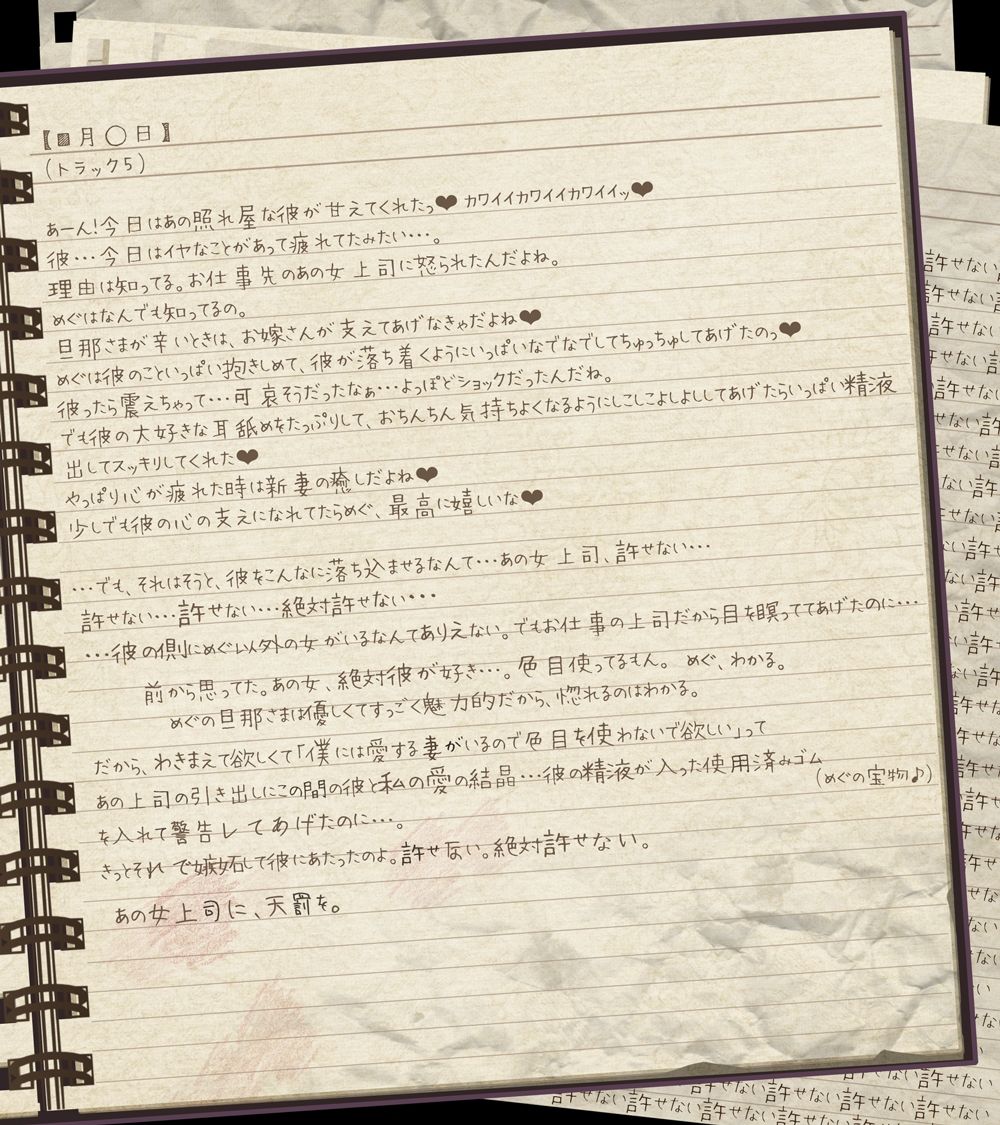 【■月◯日】
(トラック5)
あーん!今日はあの照れ屋な彼が甘えてくれたっ♥ カワイイカワイイカワイイッ♥
彼…今日はイヤなことがあって疲れてたみたい…。
理由は知ってる。お仕事先のあの女上司に怒られたんだよね。
めぐはなんでも知ってるの。
旦那さまが辛いときは、お嫁さんが支えてあげなきゃだよね♥
めぐは彼のこといっぱい抱きしめて、彼が落ち着くようにいっぱいなでなでしてちゅっちゅしてあげたのっ♥
彼ったら震えちゃって…可哀そうだったなぁ…よっぽどショックだったんだね。
でも彼の大好きな耳舐めをたっぷりして、おちんちん気持ちよくなるようにしこしこよしよししてあげたらいっぱい精液
出してスッキリしてくれた♥
やっぱり心が疲れた時は新妻の癒しだよね♥
少しでも彼の心の支えになれてたらめぐ、最高に嬉しいな♥
…でも、それはそうと、彼をこんなに落ち込ませるなんて…あの女上司、許せない…
許せない…許せない…絶対許せない…
…彼の側にめぐ以外の女がいるなんてありえない。でもお仕事の上司だから目を瞑っててあげたのに…
前から思ってた。あの女、絶対彼が好き…。色目使ってるもん。 めぐ、わかる。
めぐの旦那さまは優しくてすっごく魅力的だから、惚れるのはわかる。
だから、わきまえて欲しくて「僕には愛する妻がいるので色目を使わないで欲しい」って
あの上司の引き出しにこの間の彼と私の愛の結晶…彼の精液が入った使用済みゴム
(めぐの宝物♪)
を入れて警告してあげたのに…。
きっとそれで嫉妬して彼にあたったのよ。許せない。絶対許せない。
あの女上司に、天罰を。
許せない
許せない
許せない
許せない
許せない
許せない
許せない許せない許せない許せない許せない許せない